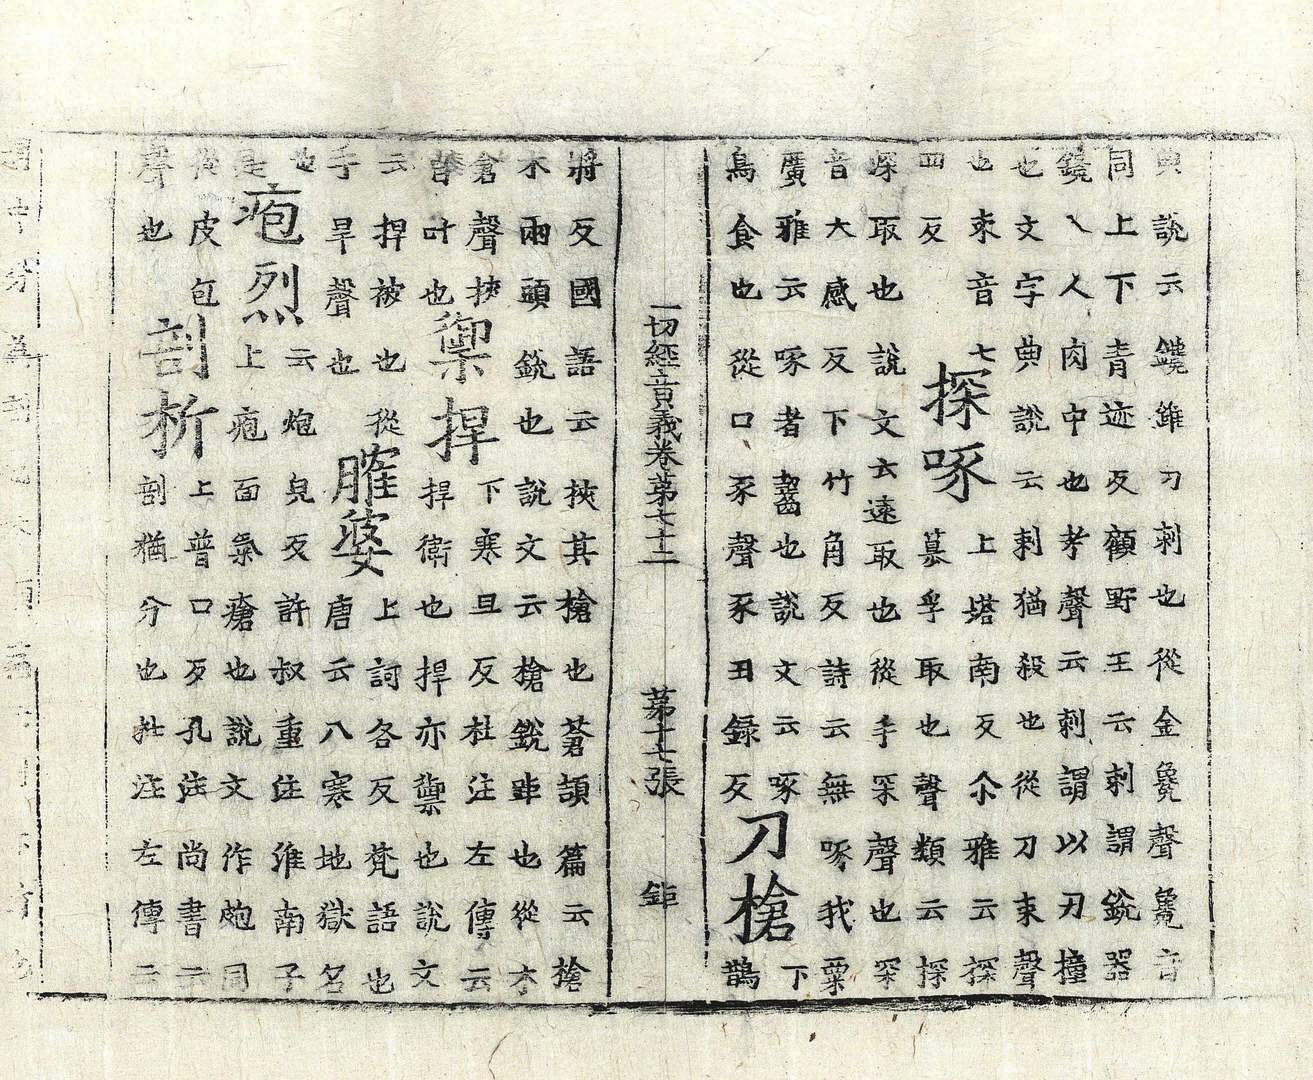 典說云鑱錐刀刺也從金毚聲毚音
同上下青迹反顧野王云刺謂銳器
鑱乀人肉中也考聲云刺謂以刀撞
也文字典說云刺猶殺也從刀朿聲
也朿音七
四反
探啄
上塔南反尒雅云探
纂孚取也聲類云探
深取也說文云遠取也從手罙聲也罙
音大感反下竹角反詩云無啄我粟
廣雅云啄者齧也說文云啄
鳥食也從口豖聲豖丑錄反
刀槍
下
鵲
一切經音義卷第七十二 第十七張 鉅
將反國語云挾其槍也蒼頡篇云槍
木兩頭銳也說文云槍銳歫也從木
倉聲挾
音叶也
禦捍
下寒旦反杜注左傳云
捍衛也捍亦禦也說文
云捍被也從
手旱聲也
臛婆
上詞各反梵語也
唐云八寒地獄名
也
是
疱烈
云炮皃反許叔重注淮南子
上疱面氣瘡也說文作皰同
從皮包
聲也
剖析
上普口反孔注尚書云
剖猶分也杜注左傳云